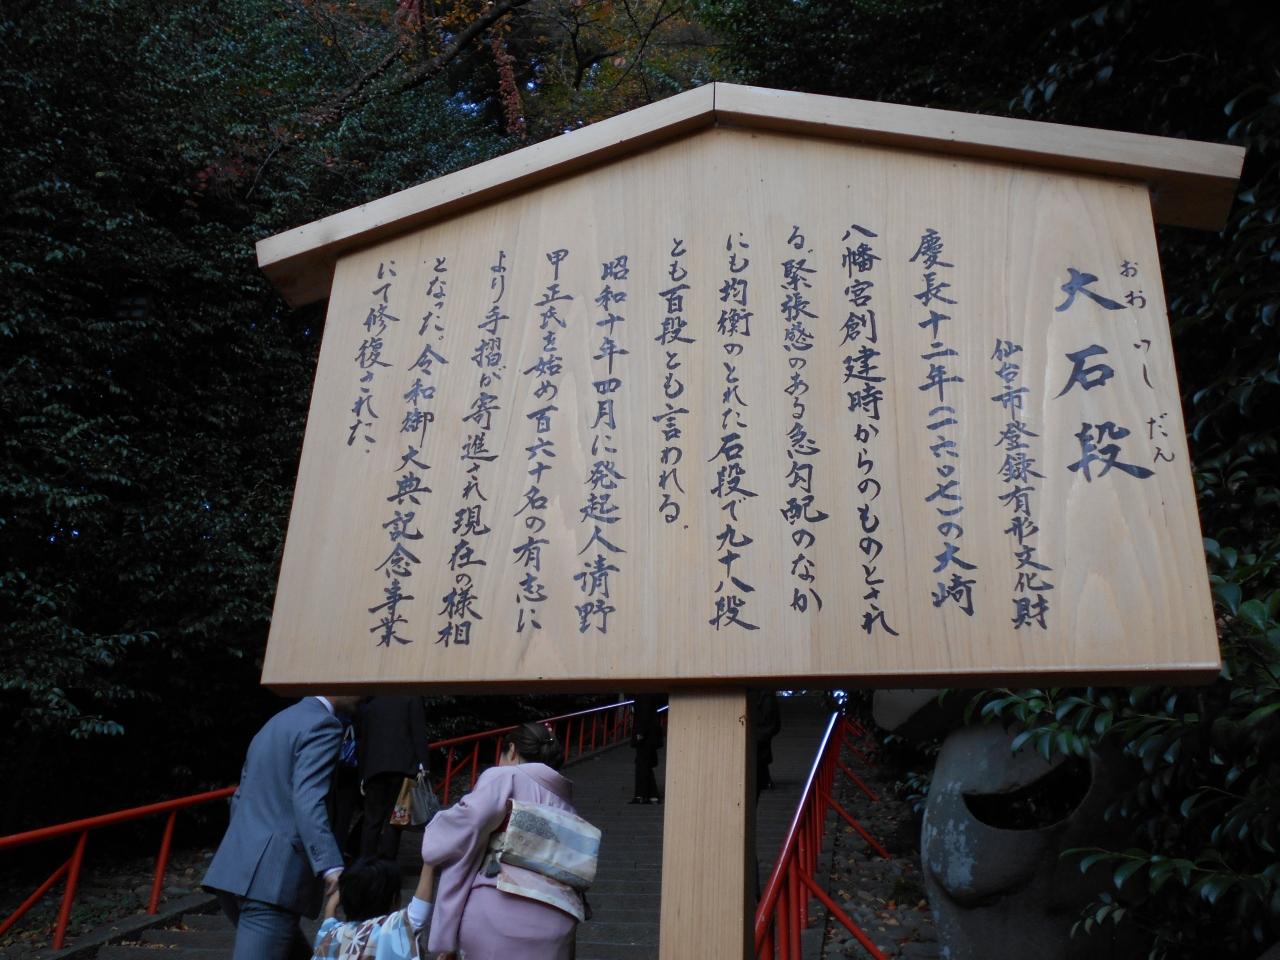 おおいしだん
大石段
仙台市登録有形文化財
慶長十二年(一六〇七)の大崎
八幡宮創建時からのものとされ
る。緊張感のある急勾配のなか
にも均衡のとれた石段で九十八段
とも百段とも言われる。
昭和十年四月に発起人清野
甲正氏を始め百六十名の有志に
より手摺が寄進され現在の様相
となった。令和御大典記念事業
にて修復された。